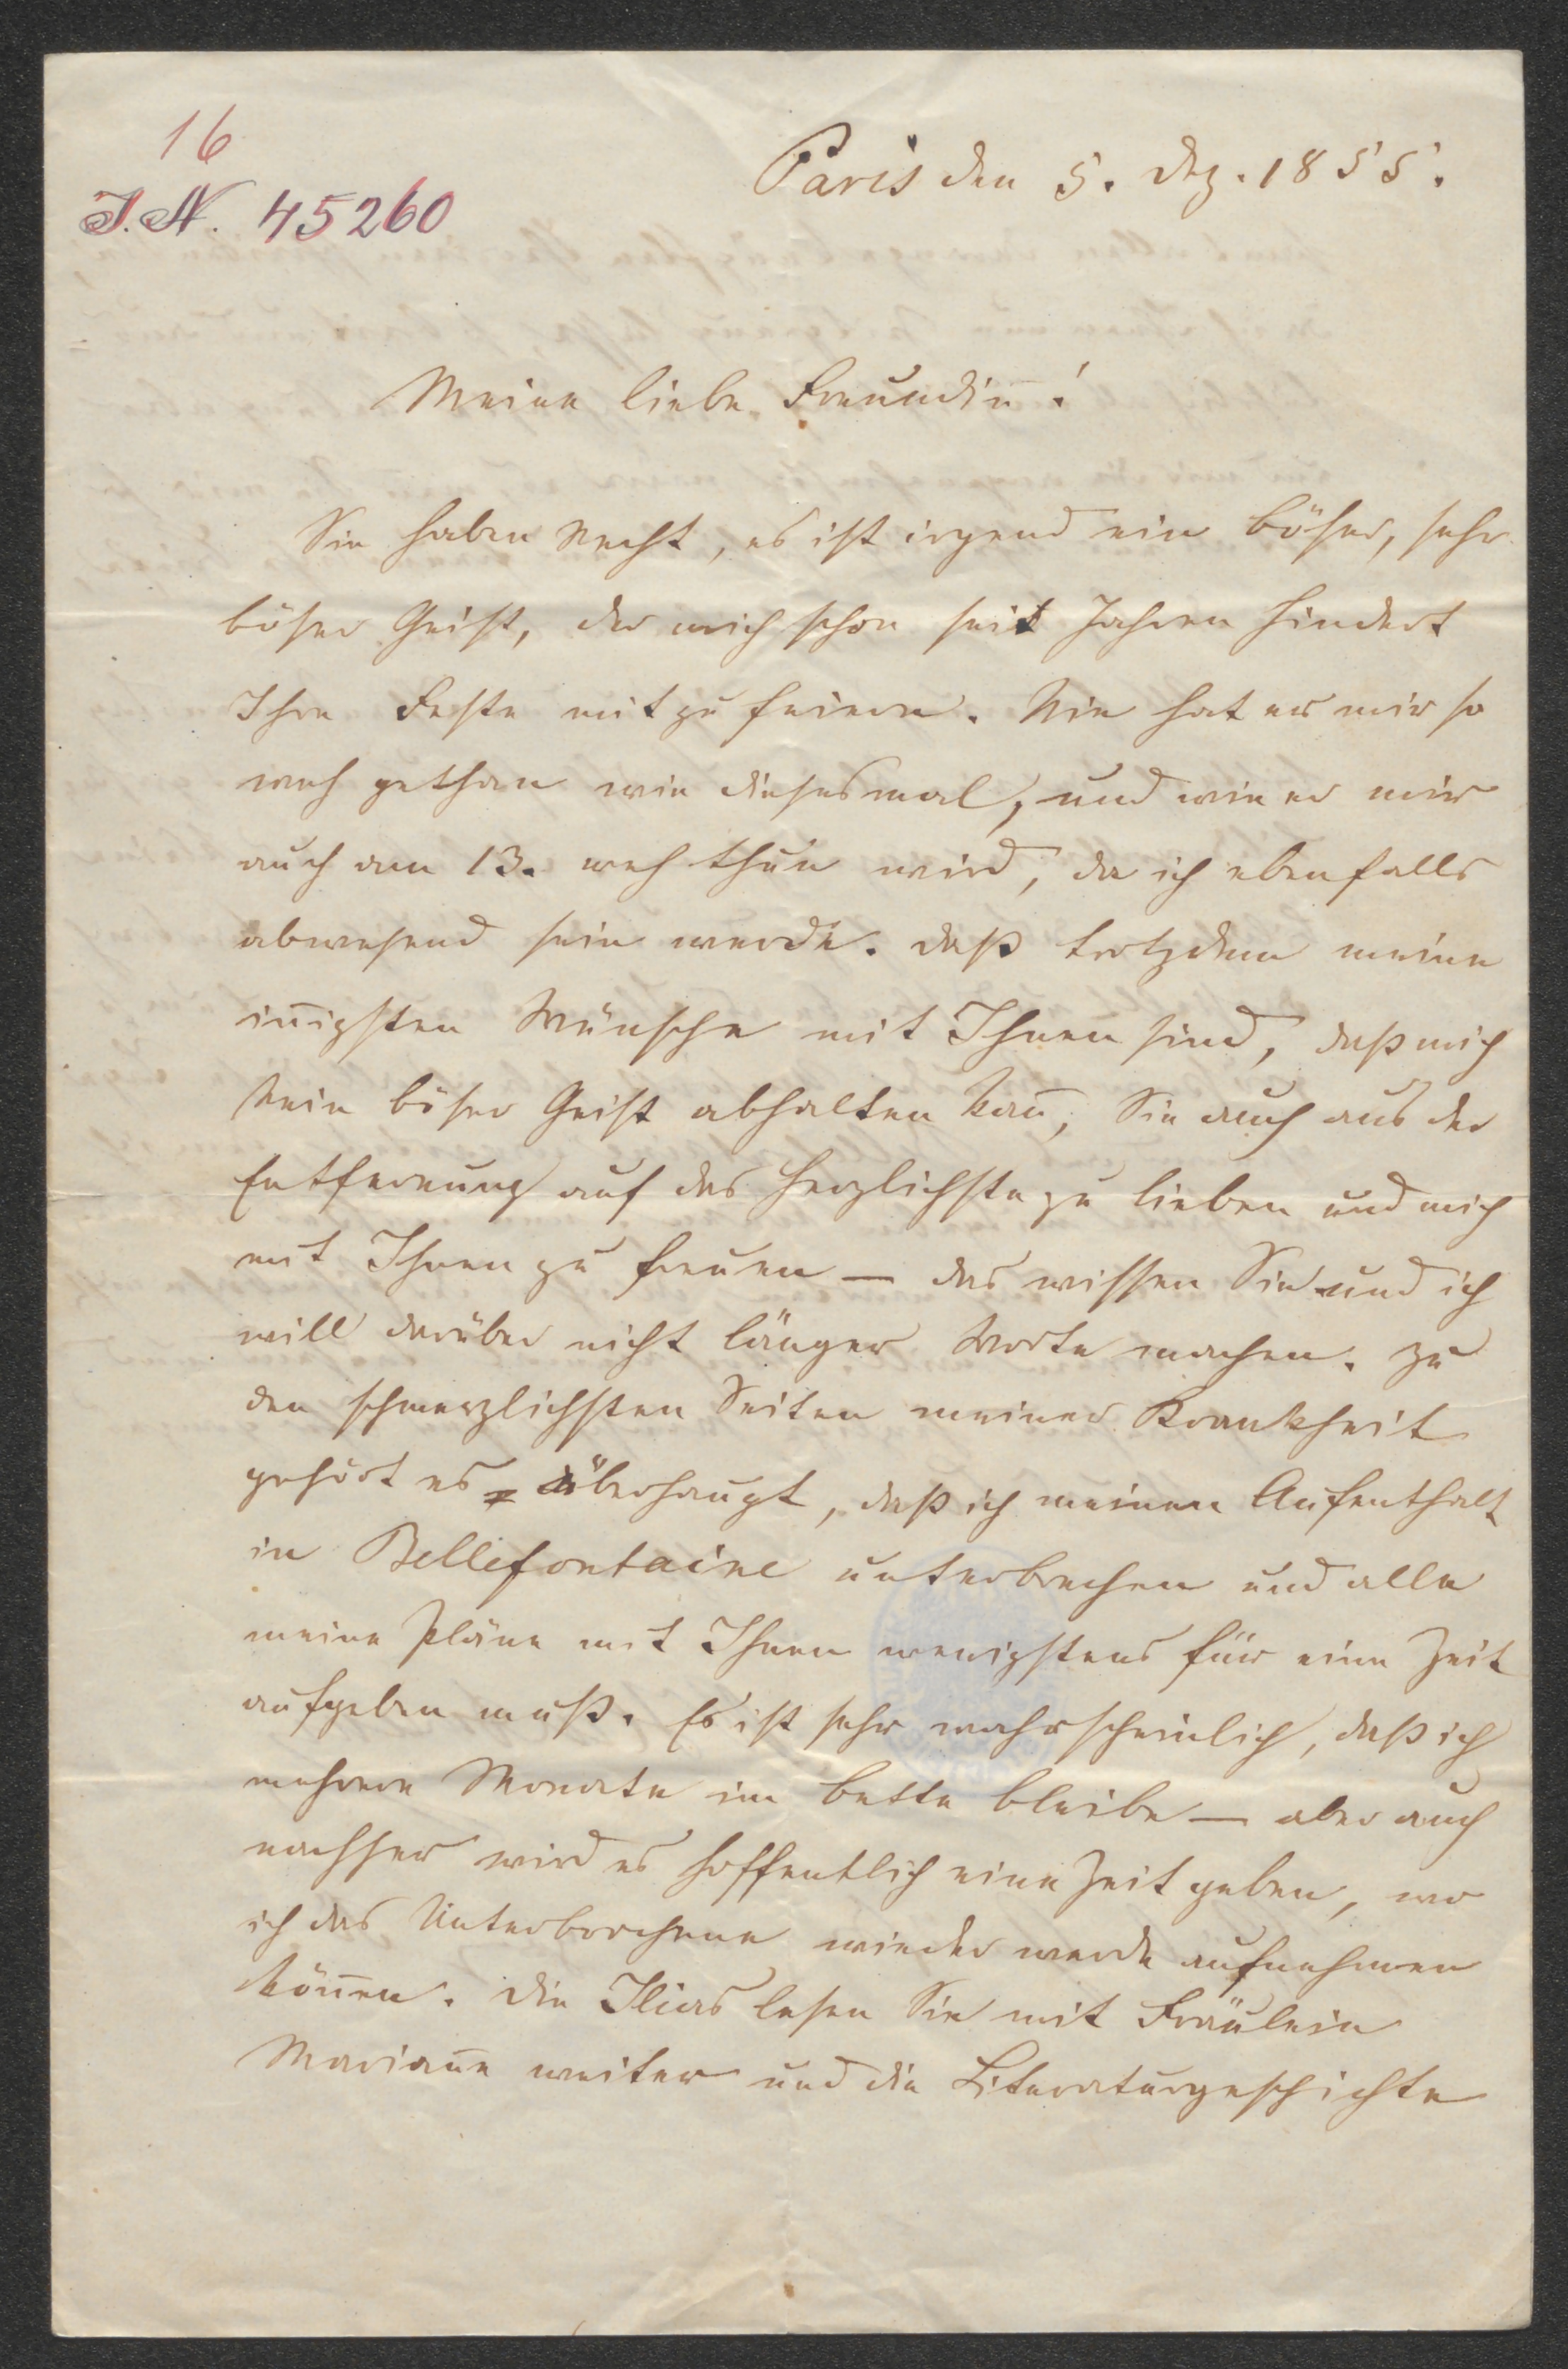 16
I.N. 45260
Paris den 5. Dez. 1855.
Meine liebe Freundin̄!
Sie haben Recht, es ist irgend ein böser, sehr
böser Geist, der mich schon seit Jahren hindert
Ihre Feste mit zu feiern. Nie hat er mir so
weh gethan wie diesesmal, und wie er mir
auch am 13. weh thun wird, da ich ebenfalls
abwesend sein werde. Daß trotzdem meine
in̄igsten Wünsche mit Ihnen sind, daß mich
kein böser Geist abhalten kan̄, Sie auch aus der
Entfernung auf das Herzlichste zu lieben und mich
mit Ihnen zu freuen — das wissen Sie und ich
will darüber nicht länger Worte machen. Zu
den schmerzlichsten Seiten meiner Krankheit
gehört es überhaupt, daß ich meinen Aufenthalt
in Bellefontaine unterbrechen und alle
meine Pläne mit Ihnen wenigstens für eine Zeit
aufgeben muß. Es ist sehr wahrscheinlich, daß ich
mehrere Monate im Bette bleibe — aber auch
nachher wird es hoffentlich eine Zeit geben, wo
ich das Unterbrochene wieder werde aufnehmen
kön̄en. Die Ilias lesen Sie mit Fräulein
Marian̄e weiter und die Literaturgeschichte